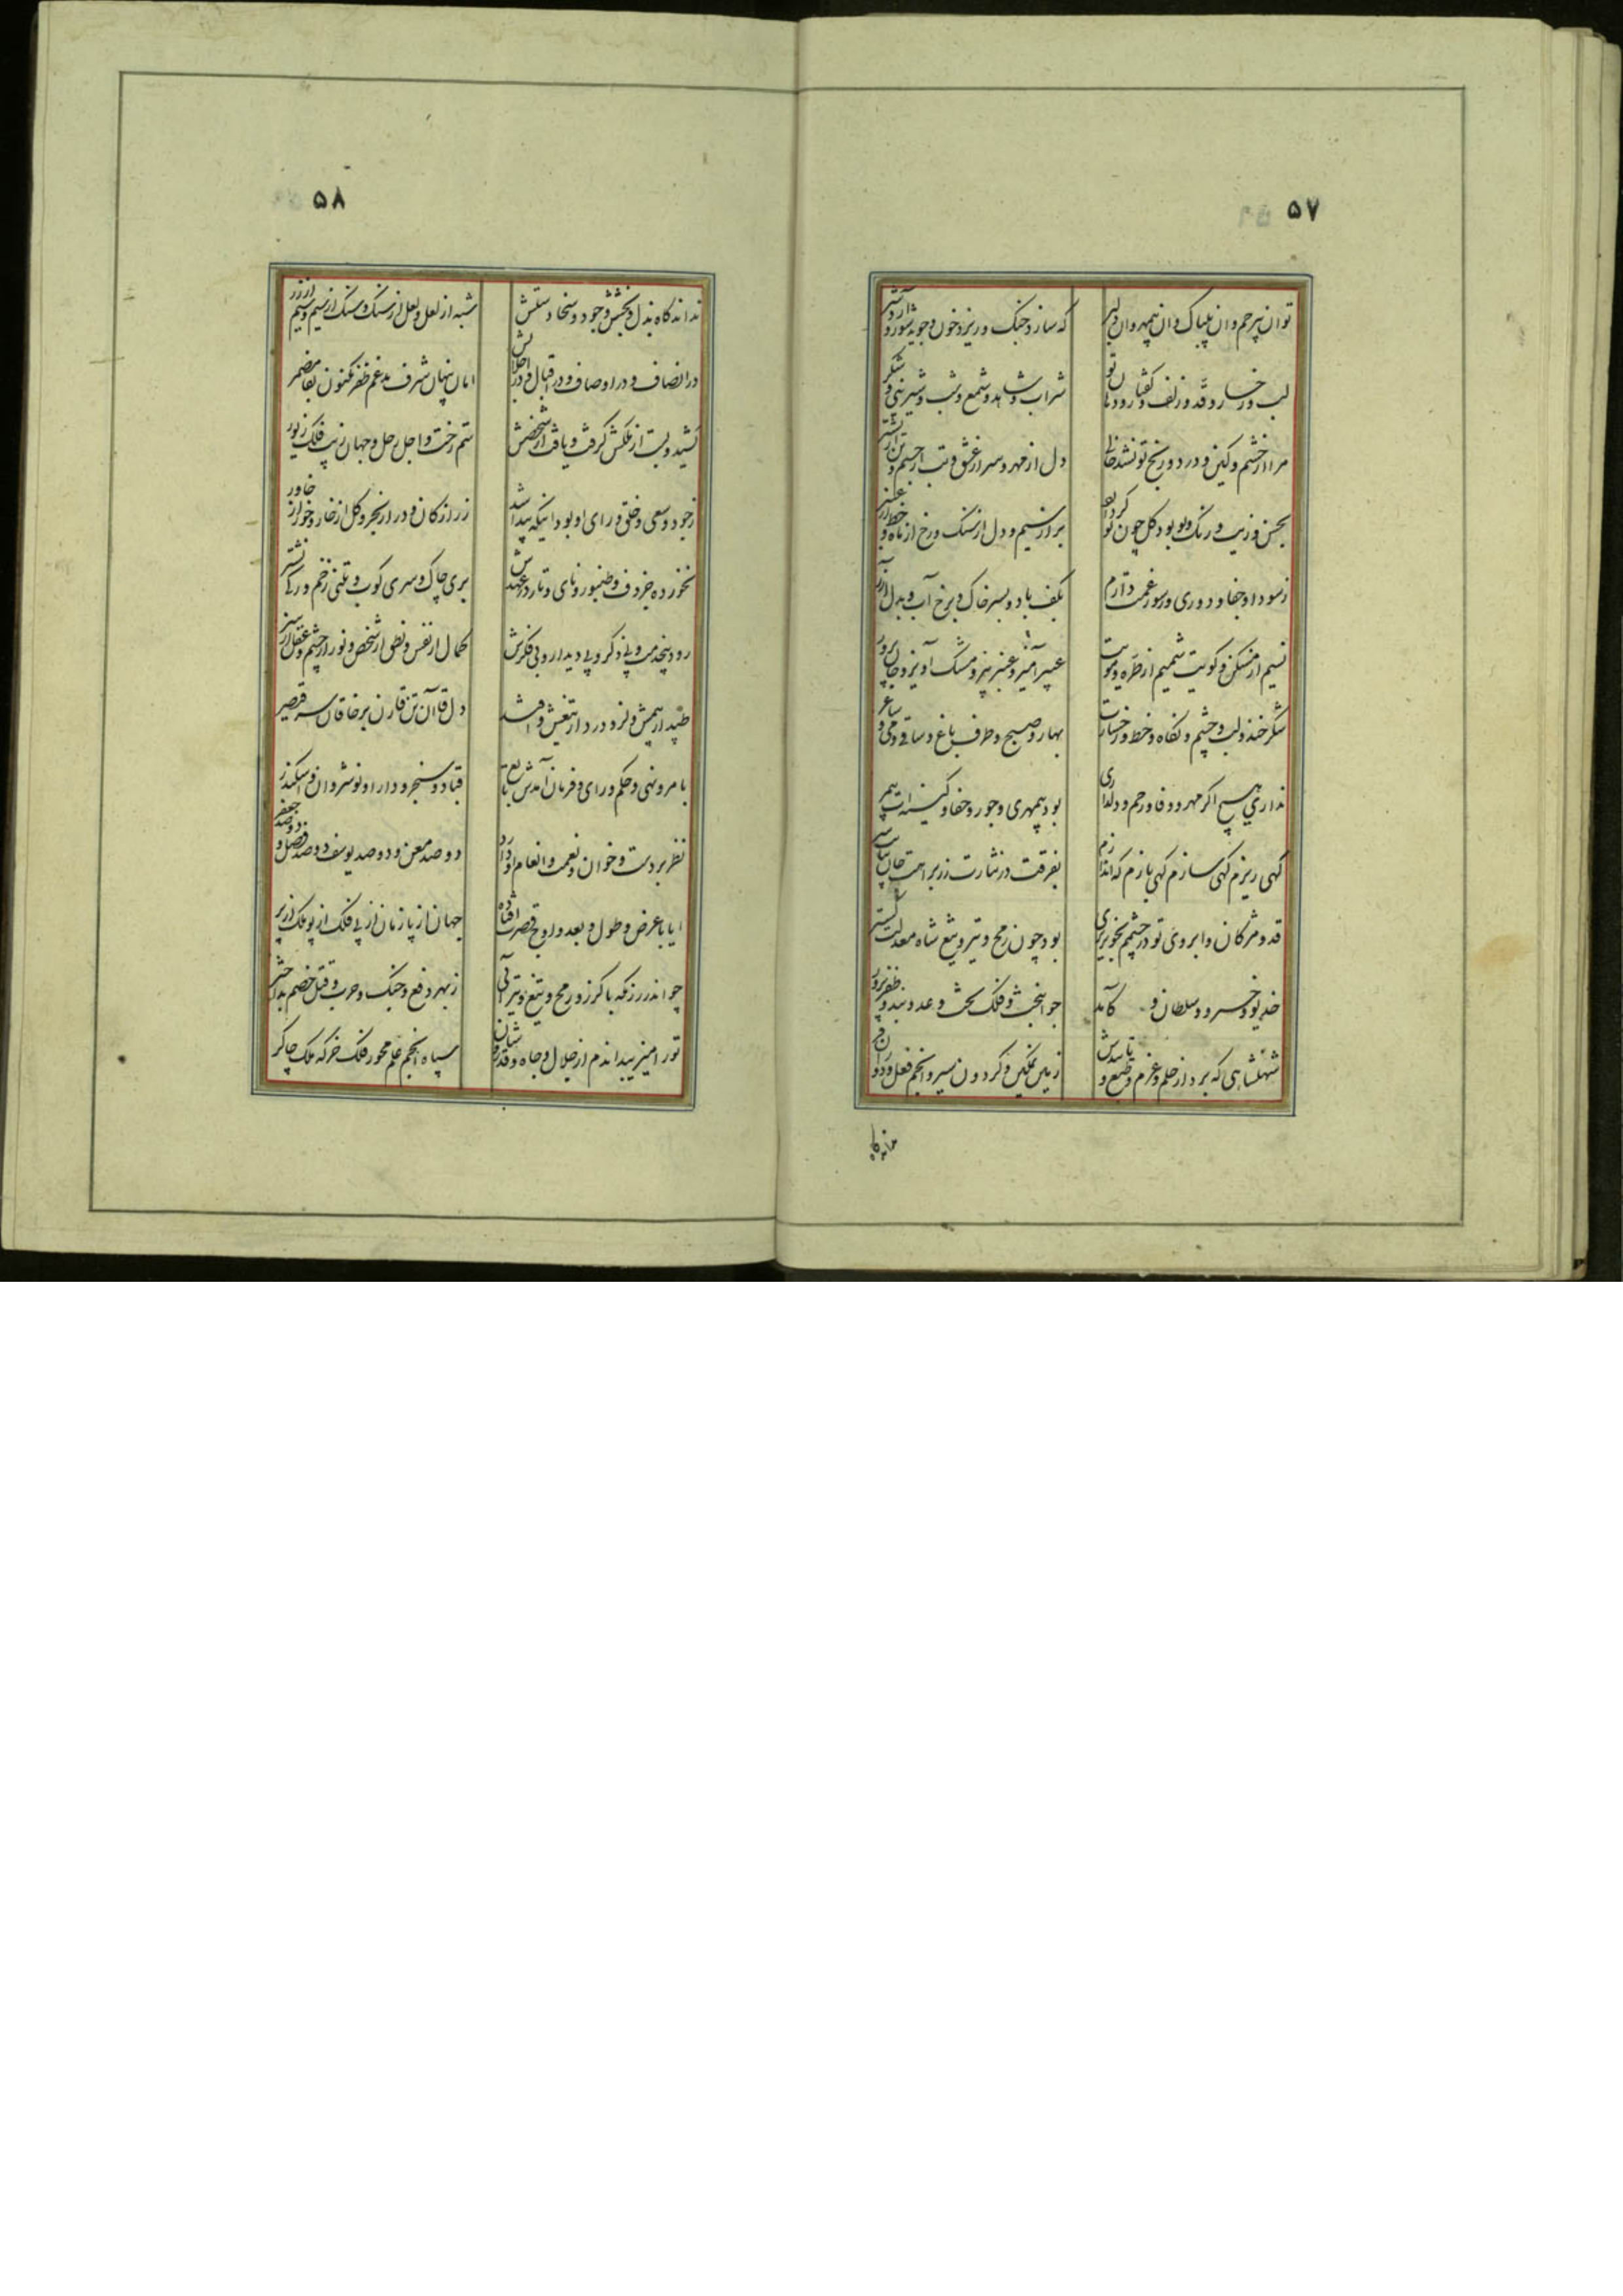 ۵۷
توان بیرحم وان بیباک وان بیمهر وان دلبر
که سازد جنک و ریزد خون و جوید شور و شر
لب و رخسار و قد و زلف و گفتار و
شراب و شاهد و شمع و شب و شیرینی و شکر
مرا از خشم و کین و درد و رنج تو نشد
دل از مهر و سر از عشق و تب از جسم و تن
بحسن و زیب و رنک و بو بود کل چون تو کر دارد
بر از سیم و دل از سنک و رخ از ماه و خط از عنبر
ز سودا و جفا و دوری و سوز غمت دارم
بکف باد و بسر خاک و برخ آب و بدل آذر
نسیم از مسکن و کویت شمیم از طره و مویت
عبیرآمیز و عنبربیز و مشک آویز و جان پرور
شکرخند و لب و چشم و نکاه و خط و رخسارت
بهار و صبح و طرف باغ و ساقی و می و ساغر
نداری هیچ اکر مهر و وفا و رحم و دلداری
بود بیمهری و جور و جفا و کینه ات بیمر
کهی ریزم کهی سازم کهی بازم که اندازم
بفرقت در نثارت زر براهت جان بپایت سر
قد و مژکان و ابروی تو در چشمم بخونریزی
بود چون رمح و تیر و تیغ شاه معدلت کستر
خدیو و خسرو و سلطان و کآمد
جوانبخت و فلک تخت و عدوبند و ظفر پرور
شهنشاهی که برد از حلم و عزم و وضع و
زمین تمکین و کردون سیر و انجم فعل و دوران فر
نداند کاه
۵۸
نداند کاه بذل و بخشش و جود و سخا دستش
شبه از لعل و لعل از سنک و سنک از سیم و سیم از زر
در انصاف و در اوصاف و در اقبال و در اجلالش
امان پنهان شرف مدغم ظفر مکنون بقا مضمر
کشید و بست از ملکش کرفت و یافت از شخصش
ستم رخت و اجل رحل و جهان زیب و فلک زیور
ز جود و سعی و خلق و رای او بود اینکه پیدا شد
زر از کان و در از بحر و کل از خار و خور از خاور
نخورده جز دف و طنبور و نای و تار در عهدش
بری چاک و سری کوب و تنی زخم و رکی نشتر
رود بیخدمت و بی ذکر و بی دیدار و بی فکرش
کمال از نفس و نطق از شخص و نور از چشم و عقل از سر
طپد از بیمش و لرزد درد از تیغش و افتد
دل قاآن تن قارن بر خاقان سر قیصر
بامر و نهی و حکم و رای و فرمان آمدش تابع
قباد و سنجر و دارا و نوشروان و اسکندر
نظر بر دست و خوان و نعمت و انعام او دارد
دو صد معن و دو صد یوسف دو صد فضل و دو صد جعفر
ایا با عرض و طول و بعد و اوج قصرت افتاده
جهان از پا زمان از پی فلک از پو ملک از پر
چو اندر رزمکه با کرز و رمح و تیغ و تیر آئی
ز بهر دفع و جنک و حرب و قتل خصم
تورا میزیبد اندم از جلال و جاه و قدر و شان
سپاه انجم علم محور فلک خرکه ملک چاکر